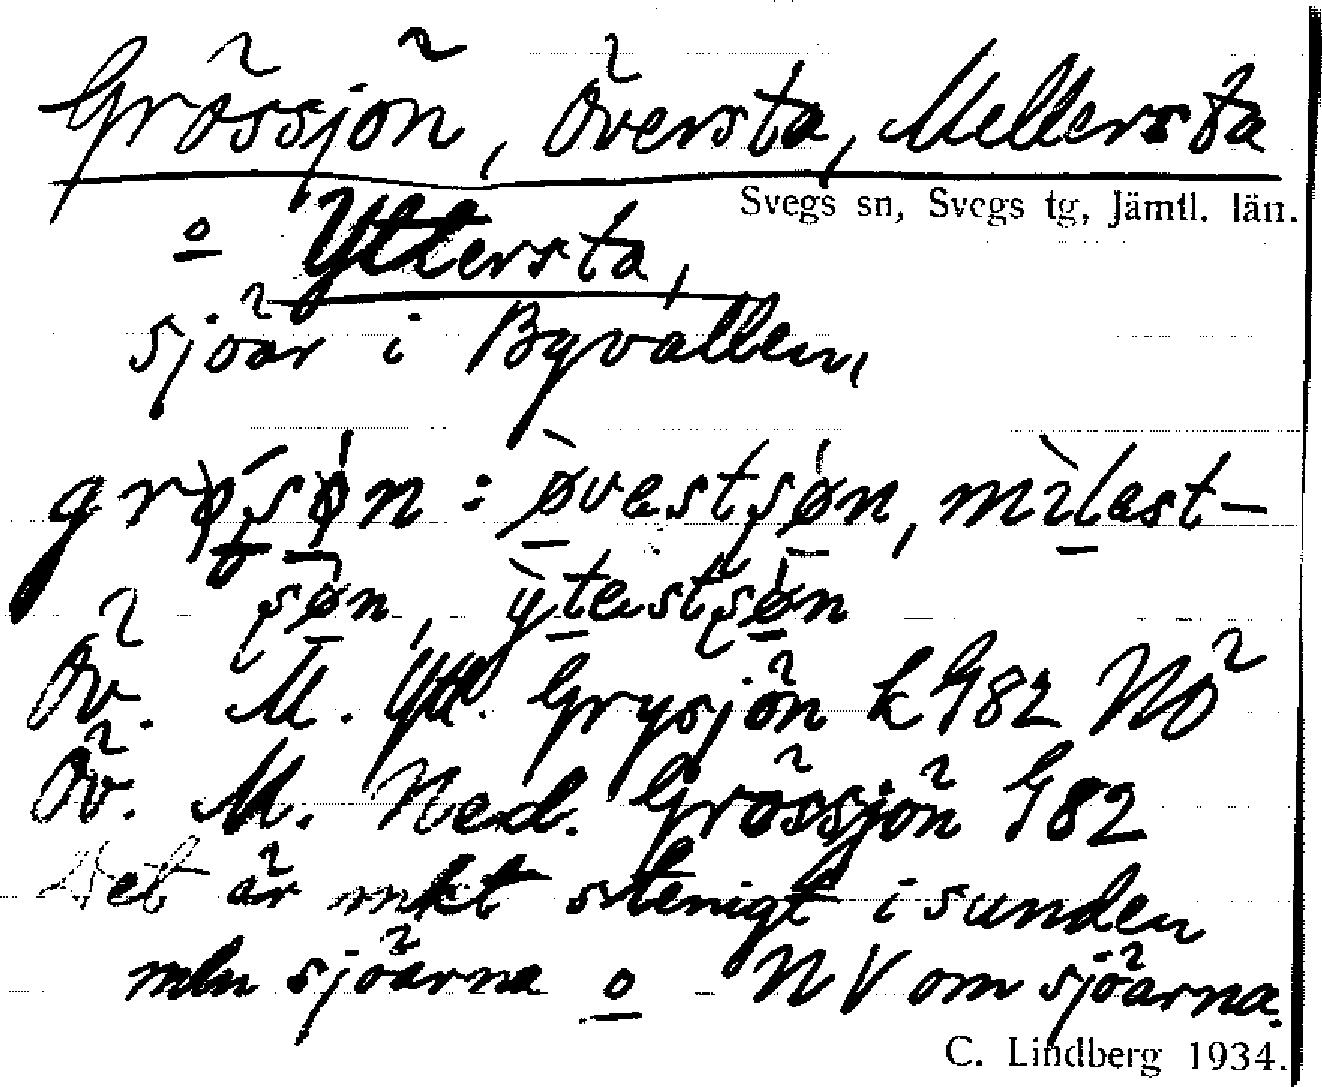 Grössjön, Översta, Mellersta
Svegs sn, Svegs tg, Jämtl. län.
o Yttersta,
sjöar i Byvallen,
grø̀ʂøn : ø̀vestʂøn, mìlest-
ʂøn, ỳtestʂøn
Öv. M. Ytt. Grysjön k G82 NÖ
Öv. M. Ned. Grössjön G82
Det är mkt stenigt i sunden
mln sjöarna o NV om sjöarna.
C. Lindberg 1934.